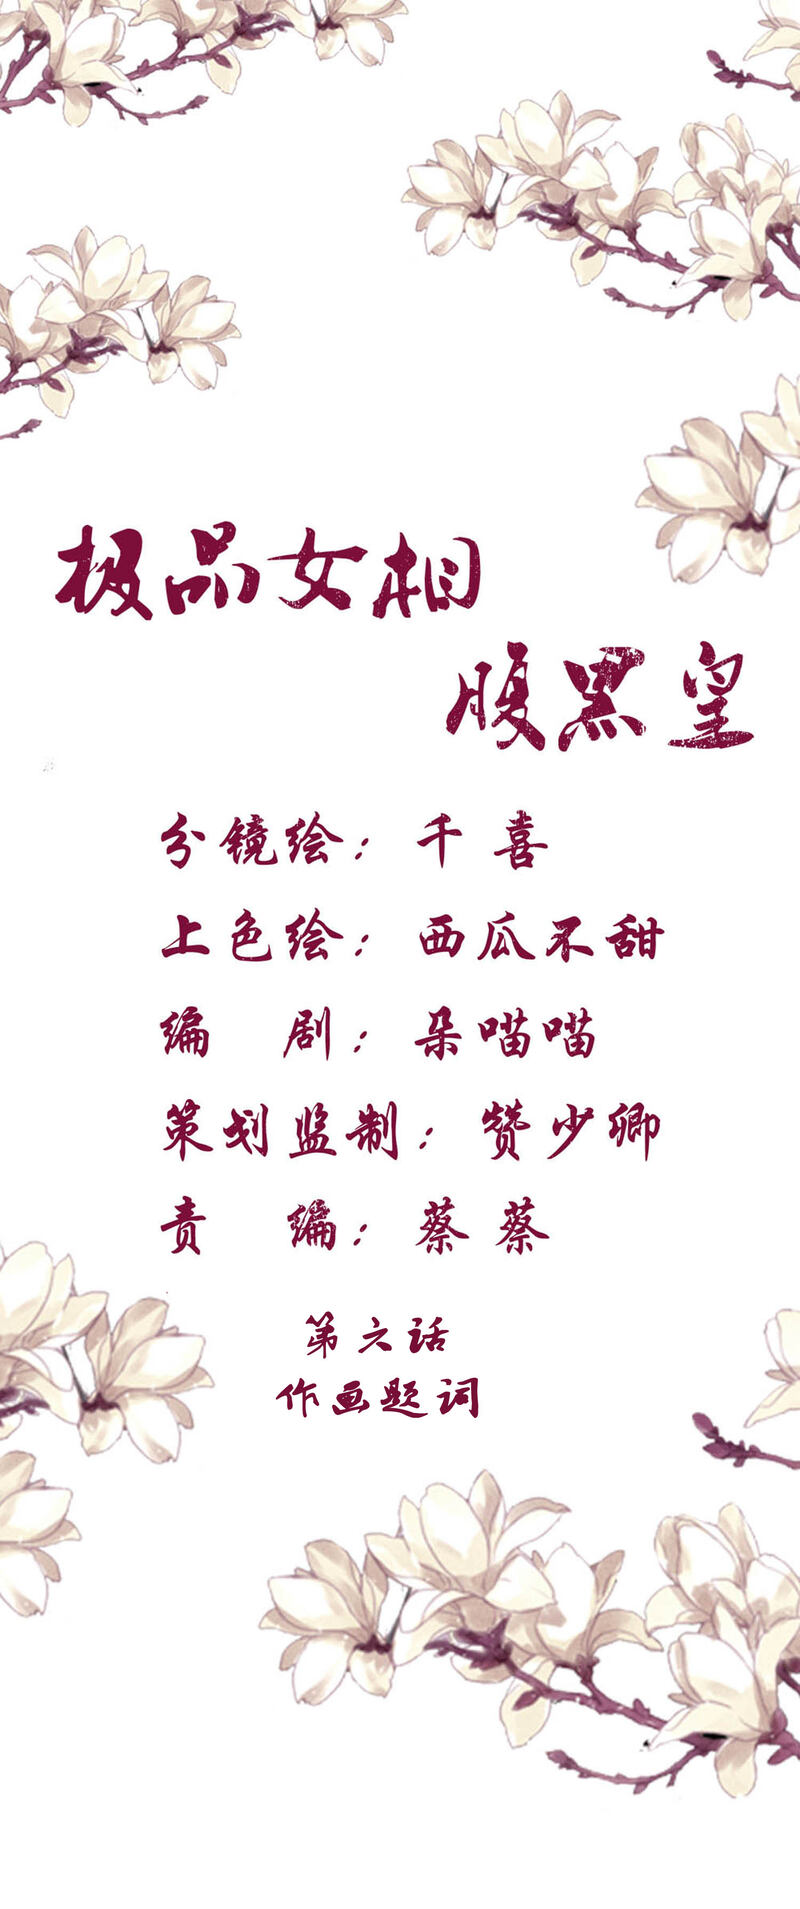 极品女相
腹黑皇
分镜绘：千喜
上色绘：西瓜不甜
编 剧：朵喵喵
策划监制：赞少卿
责 编：蔡蔡
第六话
作画题词